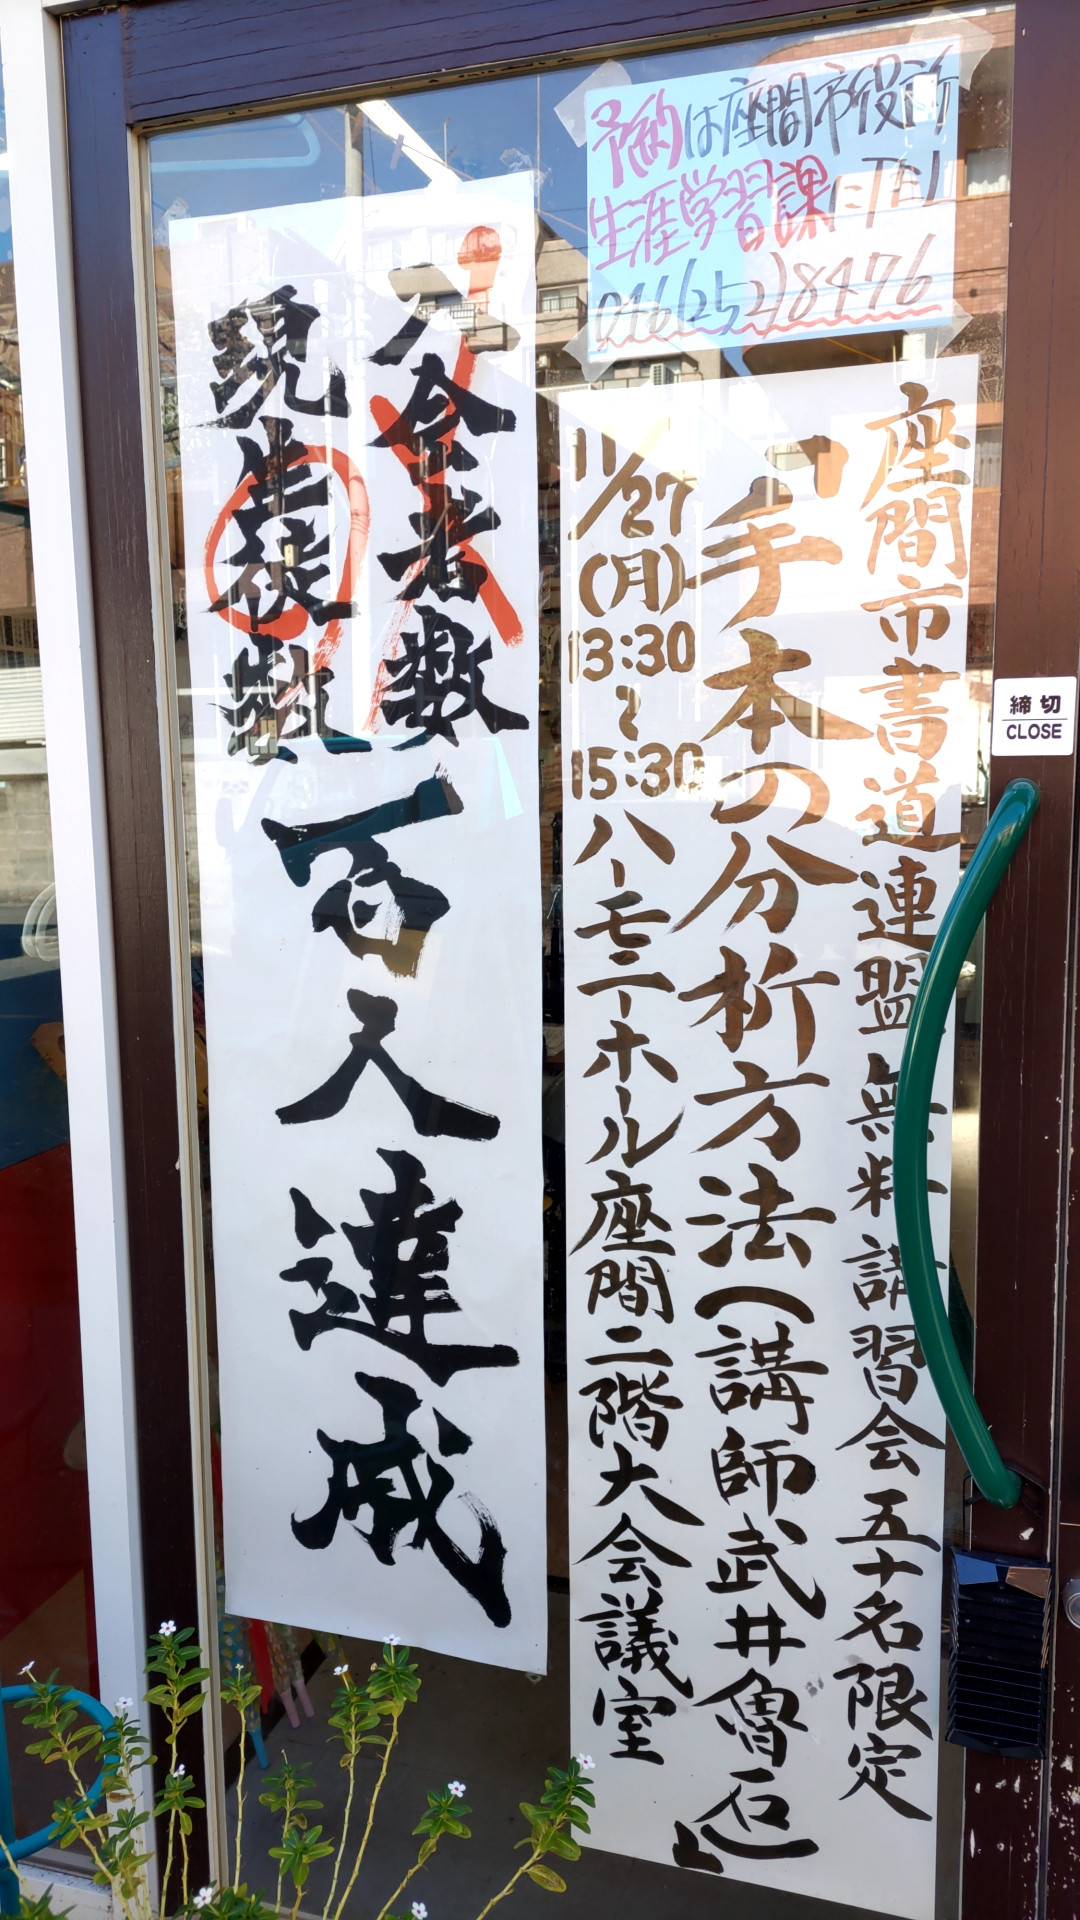 予約は座間市役所
生涯学習課にTEL
046(252)8476
座間市書道連盟無料講習会五十名限定
「手本の分析方法(講師武井魯石)」
11/27(月)13:30〜15:30ハーモニーホール座間二階大会議室
入会者数
現生徒数
百人達成
締切
CLOSE